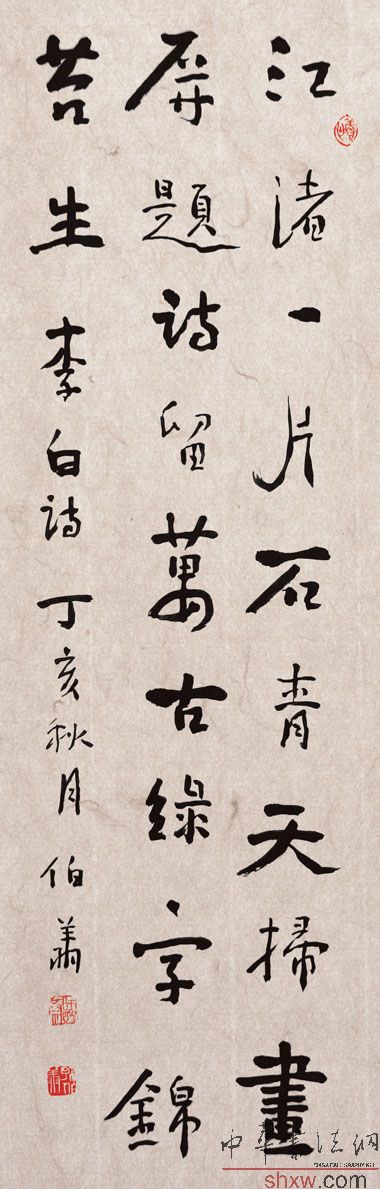 江渚一片石青天掃畫
屏題詩留萬古綠字錦
苔生 李白詩 丁亥秋月 伯
中华书法网
shxw.com